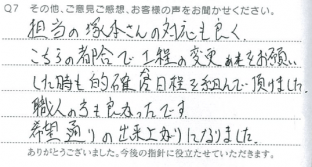 Q7 その他、ご意見ご感想、お客様の声をお聞かせください。
担当の塚本さんの対応も良く、
こちらの都合で工程の変更等をお願い
した時も的確な日程を組んで頂けました。
職人の方も良かったです。
希望通りの出来上がりになりました。
ありがとうございました。今後の指針に役立たせていただきます。